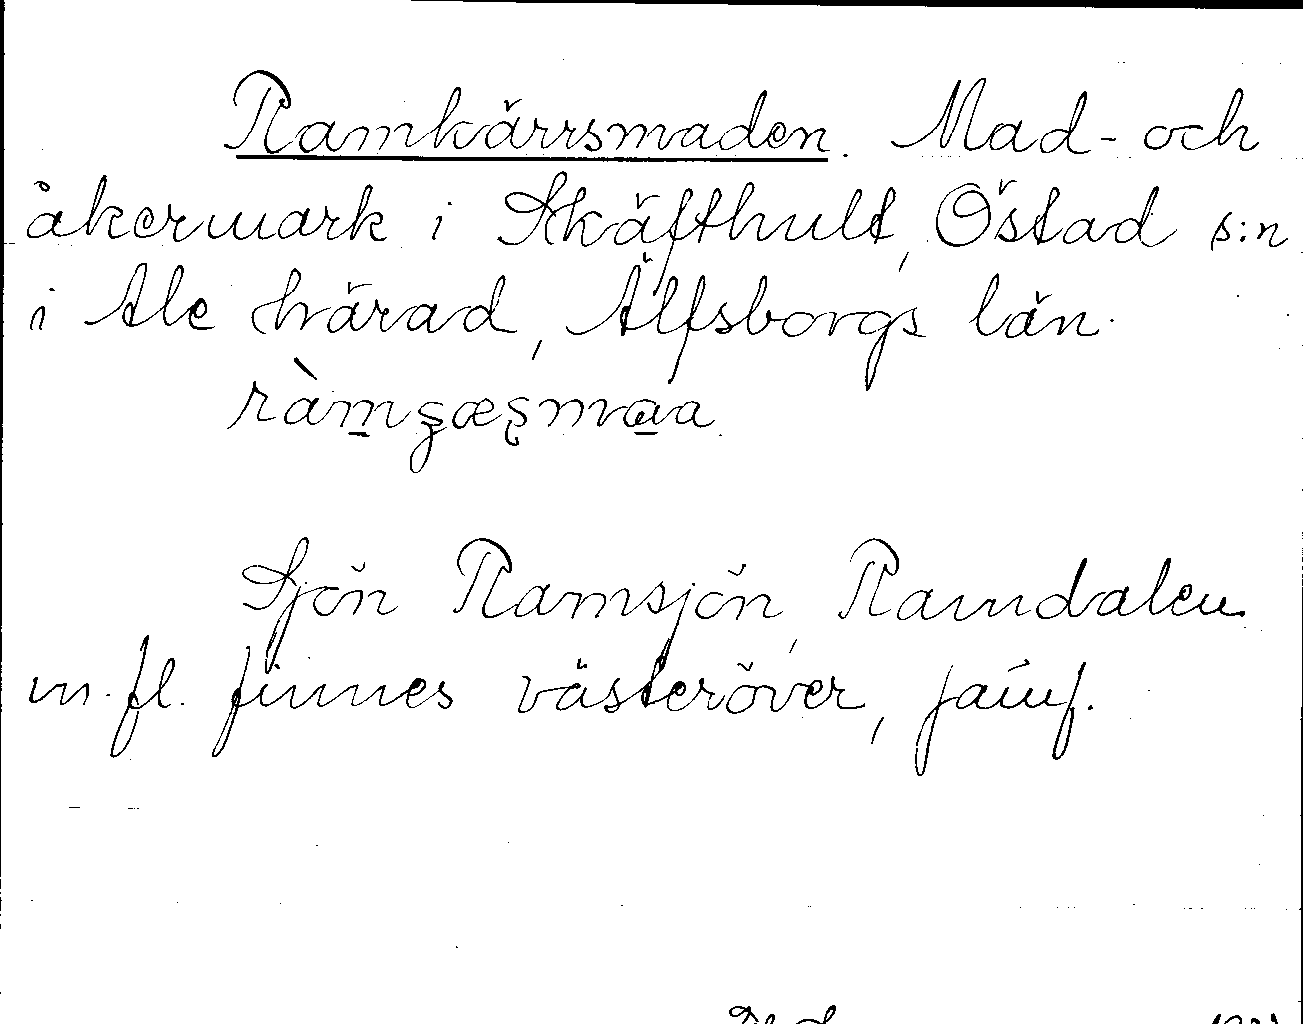 Ramkärrsmaden. Mad- och
åkermark i Skäfthult, Östad s:n
i Ale härad, Älfsborgs län.
ràm̠ʂæʂma̠a
Sjön Ramsjön, Ramdalen
m. fl. finnes västeröver, jämf.